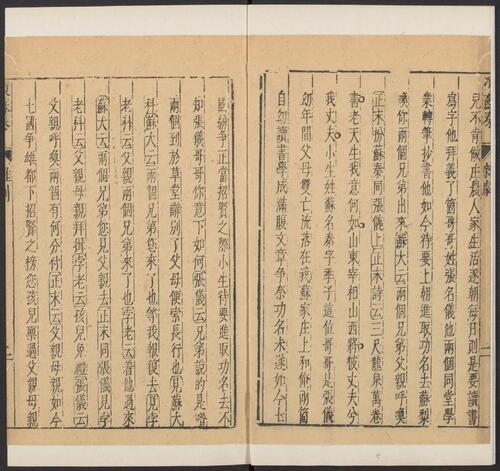 兒不肯做庄農人家生活逐朝每日則是要讀書
寫字他拜義了箇哥哥姓張名儀他兩個同堂學
業轉筆抄書他如今待要上朝進取功名去蘇梨
喚你兩個兄弟出來蘇大云兩個兄弟父親呼喚
正末扮蘇秦同張儀上正末詩云三尺龍泉萬卷
書老天生我意何如山東宰相山西將彼丈夫兮
我丈夫小生姓蘇名秦字季子這位哥哥是張儀
幼年間父母雙亡流落在我蘇家庄上和俺兩箇
自幼讀書學成滿腹文章爭奈功名未遂如今七
國紛爭正當招賢之際小生待要進取功名去不
知張儀哥哥你意下如何張儀云兄弟說的是喒
兩個到於草堂辭別了父母便索長行也見蘇大
科蘇大云兩個兄弟您來了也等我報復去見孛
老科云父親兩個兄弟來了也孛老云着他過來
蘇大云兩個兄弟您見父親去正末同張儀見孛
老科云父親母親拜揖孛老云孩兒免禮張儀云
父親呼喚兩個有何分付正末云父親母親如今
七國爭雄都下招賢之榜您孩兒稟過父親母親
一
二